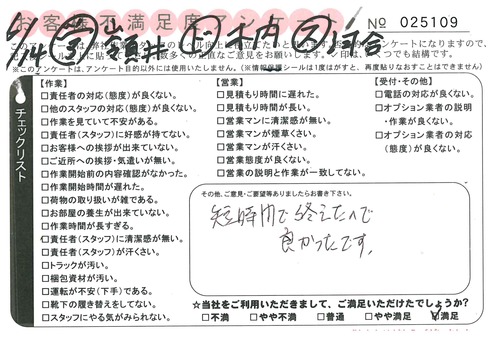 お客様不満足度
№ 025109
6/14
※このアンケートは、アンケート目的以外には使用いたしません。(※情報保護シールは1度はがすと、再度貼りなおすことはできません)
チェックリスト
【作業】
□責任者の対応(態度)が良くない。
□他のスタッフの対応(態度)が良くない。
□作業を見ていて不安がある。
□責任者(スタッフ)に好感が持てない。
□お客様への挨拶が出来ていない。
□ご近所への挨拶・気遣いが無い。
□作業開始前の内容確認がなかった。
□作業開始時間が遅れた。
□荷物の取り扱いが雑である。
□お部屋の養生が出来ていない。
□作業時間が長すぎる。
□責任者(スタッフ)に清潔感が無い。
□責任者(スタッフ)が汗くさい。
□トラックが汚い。
□梱包資材が汚い。
□運転が不安(下手)である。
□靴下の履き替えをしてない。
□スタッフにやる気がみられない。
【営業】
□見積もり時間に遅れた。
□見積もり時間が長い。
□営業マンに清潔感が無い。
□営業マンが煙草くさい。
□営業マンが汗くさい。
□営業態度が良くない。
□営業の説明と作業が一致してない。
【受付・その他】
□電話の対応が良くない。
□オプション業者の説明・作業が良くない。
□オプション業者の対応(態度)が良くない。
その他、ご意見・ご要望等ありましたらお書き下さい。
短時間で終えたので
良かったです。
☆当社をご利用いただきまして、ご満足いただけたでしょうか?
□不満 □やや不満 □普通 □やや満足 ☑満足